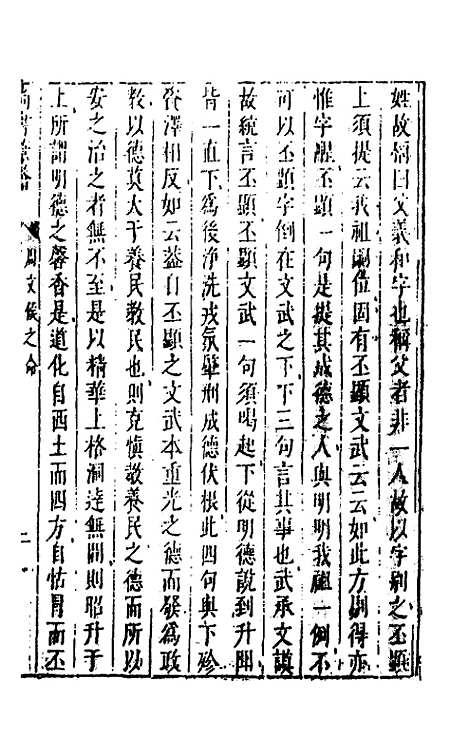 姓故稱曰父義和字也稱父者非一人故以字别之丕顯
上須提云我祖嗣位固有丕顯文武云云如此方覺得亦
惟字醒丕顯一句是提其成德之人與明明我祖一例不
可以丕顯字倒在文武之下下三句言其事也武承文謨
故統言丕顯丕顯文武一句須喝起下從明德說到升聞
皆一直下為後净洗戎氛肇刑成德伏根此四句與下殄
資澤相反如云葢自丕顯之文武本重光之德而發為政
教以德莫大于養民教民也則克慎敬養民之德而所以
安之治之者無不至是以精華上格洞達無間則昭升于
上所謂明德之馨香是道化自西土而四方自怙冒而丕
周文侯之命
二